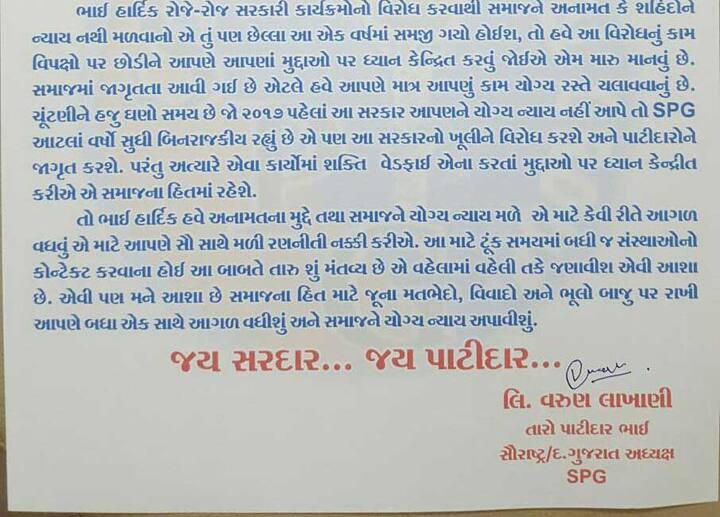 ભાઈ હાર્દિક રોજે-રોજ સરકારી કાર્યક્રમોનો વિરોધ કરવાથી સમાજને અનામત કે શહિદોને
ન્યાય નથી મળવાનો એ તું પણ છેલ્લા આ એક વર્ષમાં સમજી ગયો હોઈશ, તો હવે આ વિરોધનું કામ
વિપક્ષો પર છોડીને આપણે આપણાં મુદ્દાઓ પર ધ્યાન કેન્દ્રિત કરવું જોઈએ એમ મારુ માનવું છે.
સમાજમાં જાગૃતતા આવી ગઈ છે એટલે હવે આપણે માત્ર આપણું કામ યોગ્ય રસ્તે ચલાવવાનું છે.
ચૂંટણીને હજુ ઘણો સમય છે જો ૨૦૧૭ પહેલાં આ સરકાર આપણને યોગ્ય ન્યાય નહીં આપે તો SPG
આટલાં વર્ષો સુધી બિનરાજકીય રહ્યું છે એ પણ આ સરકારનો ખૂલીને વિરોધ કરશે અને પાટીદારોને
જાગૃત કરશે. પરંતુ અત્યારે એવા કાર્યોમાં શક્તિ વેડફાઈ એના કરતાં મુદ્દાઓ પર ધ્યાન કેન્દ્રીત
કરીએ એ સમાજના હિતમાં રહેશે.
તો ભાઈ હાર્દિક હવે અનામતના મુદ્દે તથા સમાજને યોગ્ય ન્યાય મળે એ માટે કેવી રીતે આગળ
વધવું એ માટે આપણે સૌ સાથે મળી રણનીતી નક્કી કરીએ. આ માટે ટૂંક સમયમાં બધી જ સંસ્થાઓનો
કોન્ટેક્ટ કરવાના હોઈ આ બાબતે તારુ શું મંતવ્ય છે એ વહેલામાં વહેલી તકે જણાવીશ એવી આશા
છે. એવી પણ મને આશા છે સમાજના હિત માટે જૂના મતભેદો, વિવાદો અને ભૂલો બાજુ પર રાખી
આપણે બધા એક સાથે આગળ વધીશું અને સમાજને યોગ્ય ન્યાય અપાવીશું.
જય સરદાર... જય પાટીદાર...
લિ. વરુણ લાખાણી
તારો પાટીદાર ભાઈ
સૌરાષ્ટ્ર/દ.ગુજરાત અધ્યક્ષ
SPG